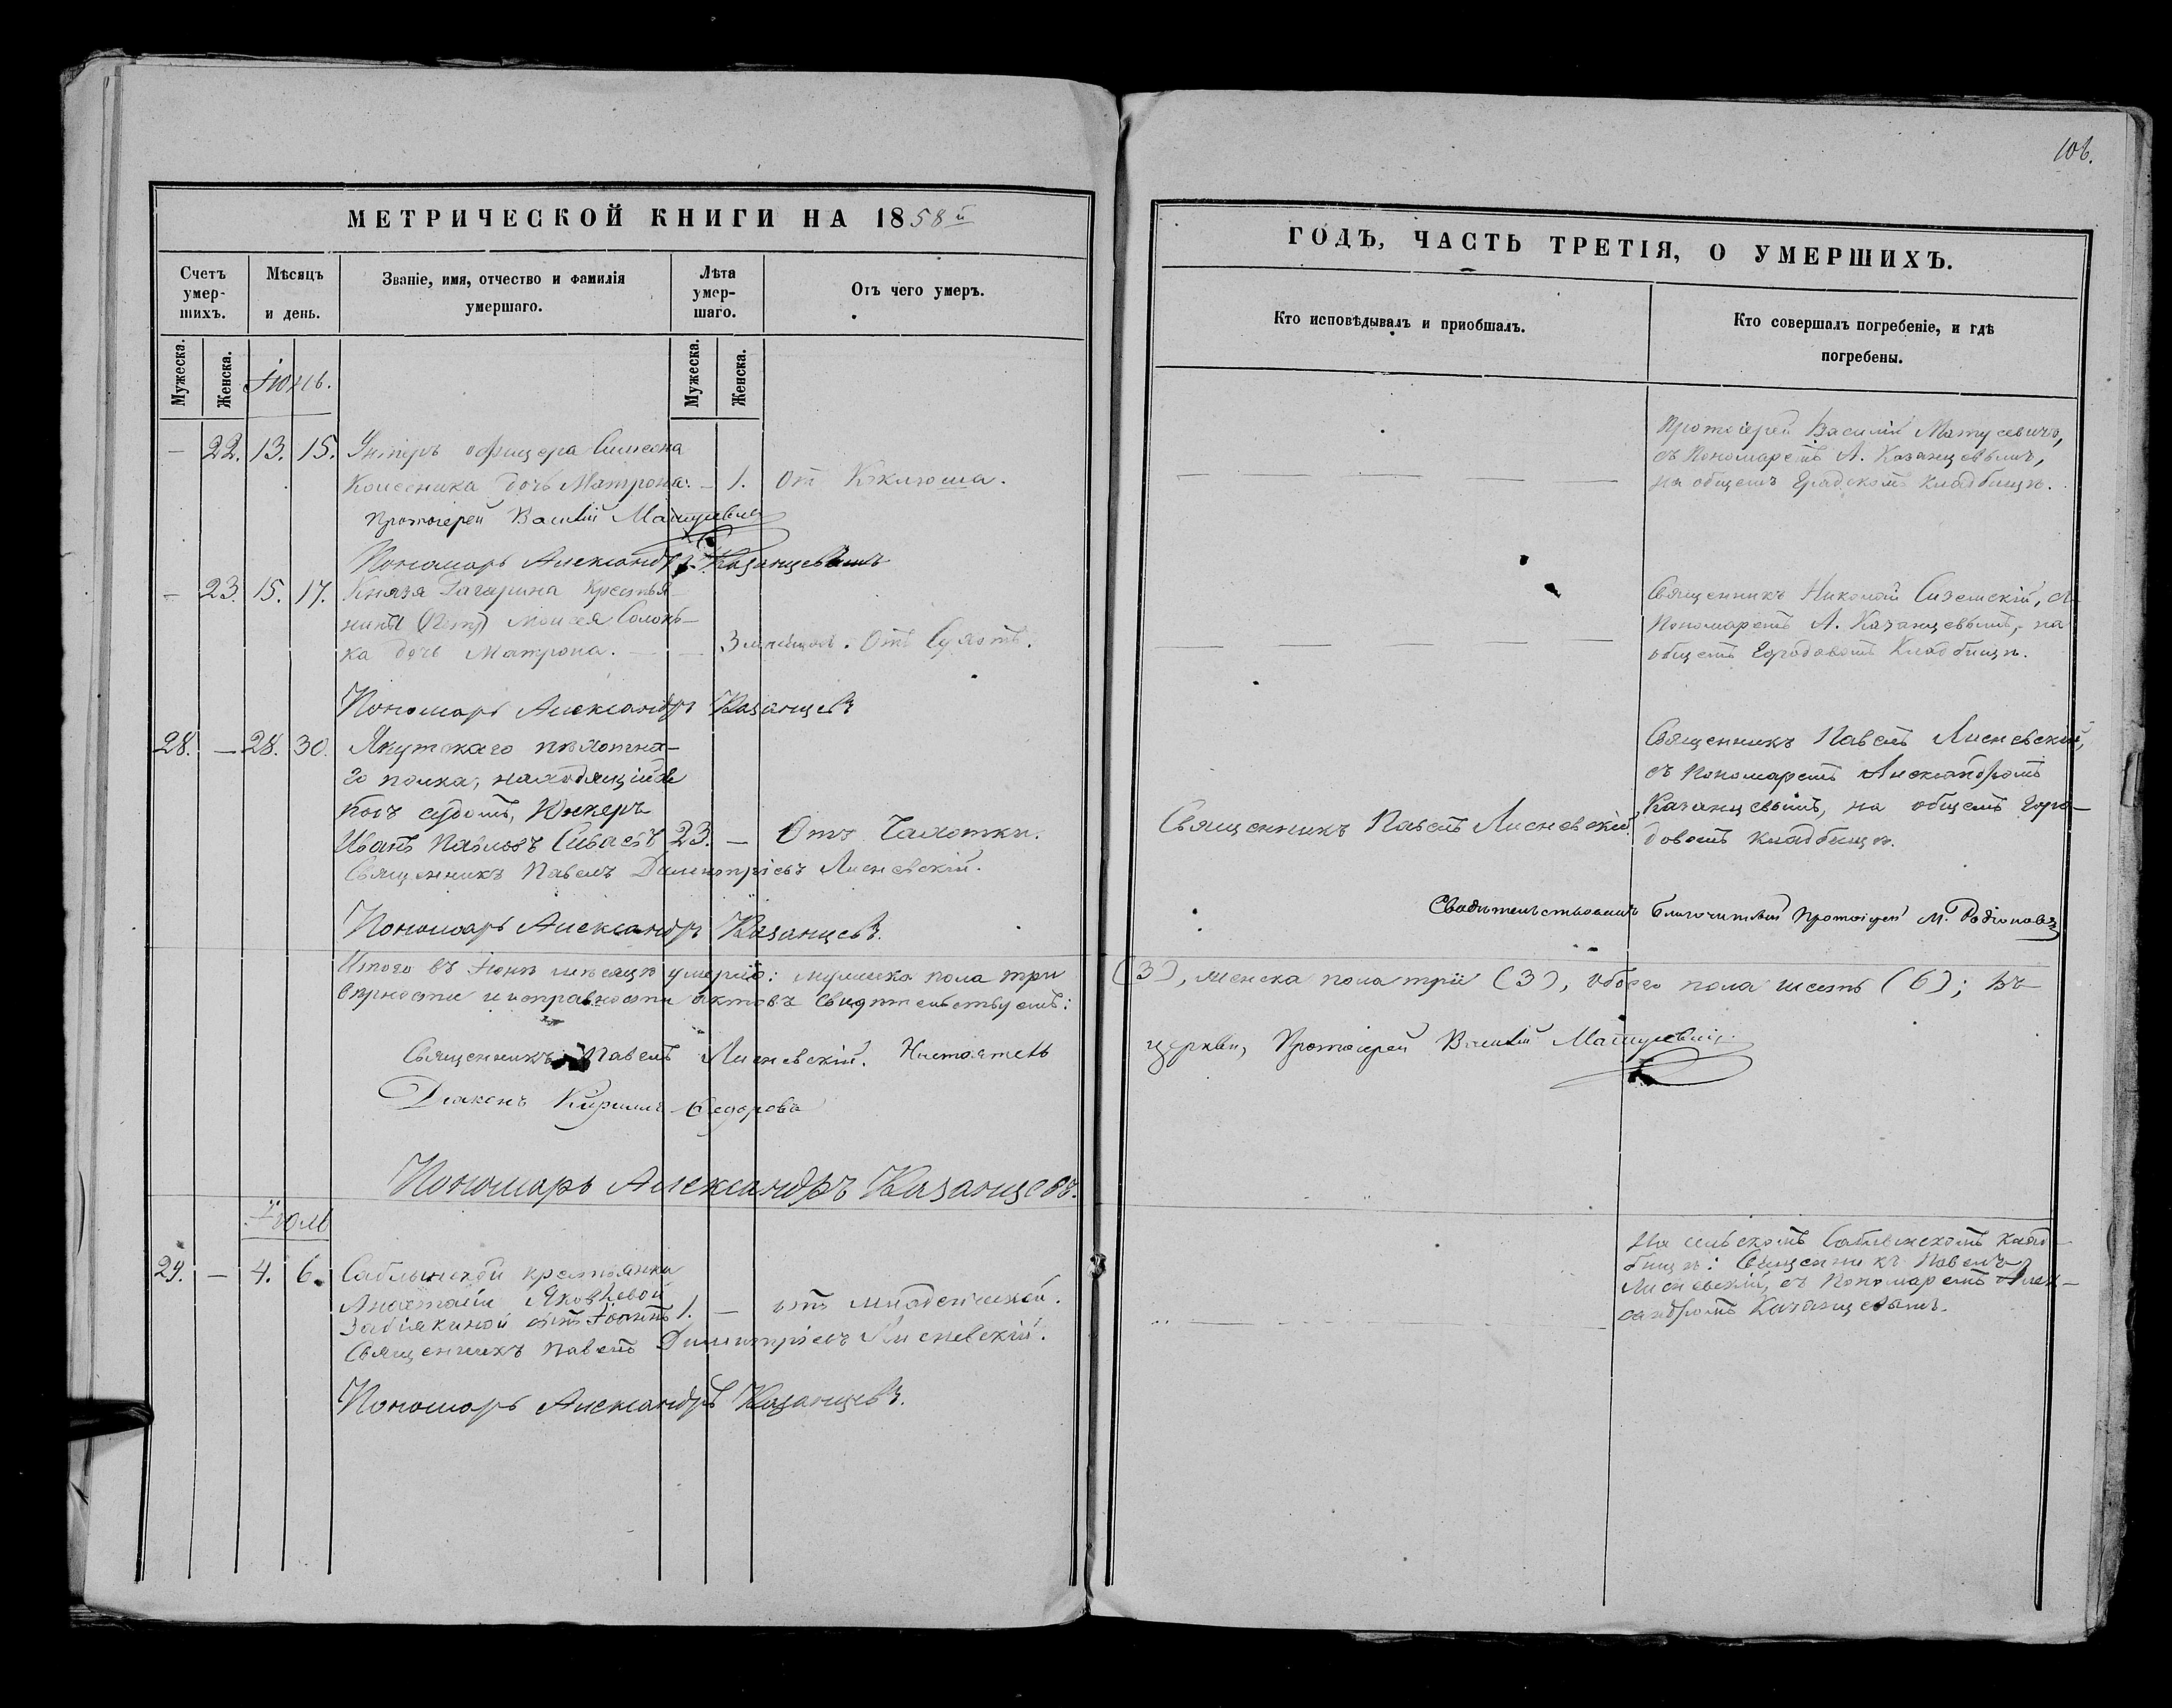 106.
МЕТРИЧЕСКОЙ КНИГИ НА 1858й
ГОДЪ, ЧАСТЬ ТРЕТІЯ, О УМЕРШИХЪ.
Счетъ умер-
шихъ.
Мѣсяцъ
и день.
Званіе, имя, отчество и фамилія
умершаго.
Лѣта
умер-
шаго.
Отъ чего умеръ.
Кто исповѣдывалъ и пріобщалъ.
Кто совершалъ погребеніе, и гдѣ
погребены.
Мужеска.
Женска.
Іюнь.
Мужеска.
Женска.
— 22. 13. 15. Унтеръ офицера
дочь Матрона. — 1. От Коклюша.
Протоіерей Василій Матусевичъ,
съ Пономаремъ А. Казанцевымъ,
на общемъ Градскомъ кладбищѣ.
Протоіерей Василій Матусевич
Пономарь Александръ Казанцевымъ
— 23. 15. 17. Князя Гагарина Крестья-
Моисея
ка дочь Матрона. —
Священникъ Николай
Пономаремъ А. Казанцевымъ, на
общемъ Городовомъ Кладбищѣ.
Пономарь Александръ Казанцевъ
28. — 28. 30. Якутскаго пѣхотна-
го полка, находящійся
подъ судомъ, Юнкеръ
Иванъ Павловъ 23. — Отъ Чахотки.
Священникъ Павелъ Лисневскій.
Священникъ Павелъ Лисневскій,
съ Пономаремъ Александромъ
Казанцевымъ, на общемъ Горо-
довомъ кладбищѣ.
Священникъ Павелъ Димитріевъ Лисневскій.
Пономарь Александръ Казанцевъ.
Свидѣтельствовалъ Благочинный Протоіерей М. Родіоновъ
Итого въ Іюнѣ мѣсяцѣ умерло: мужеска пола три (3), женска пола три (3), обоего пола шесть (6); Въ
вѣрности и исправности актовъ свидѣтельствуемъ:
Священникъ Павелъ Лисневскій. Настоятель церкви, Протоіерей Василій Матусевич.
Діаконъ Кириллъ Федоровъ
Пономарь Александръ Казанцевъ.
Іюль
29. — 4. 6. Саблинской крестьянки
Анастасіи Яковлевой
сынъ 1. — отъ младенческой.
На сельскомъ Саблинскомъ клад-
бищѣ: Священникъ Павелъ
Лисневскій, съ Пономаремъ Алек-
сандромъ Казанцевымъ.
Священникъ Павелъ Димитріевъ Лисневскій.
Пономарь Александръ Казанцевъ.